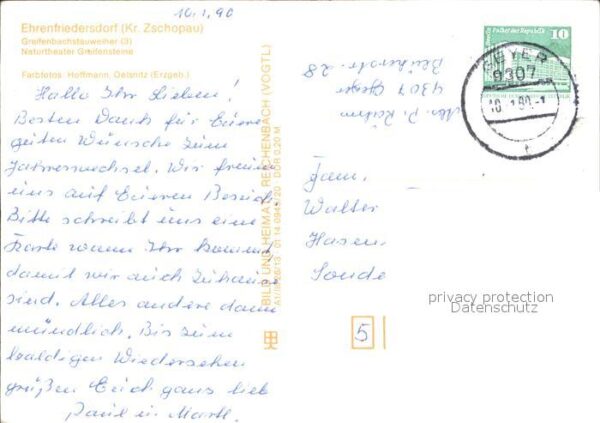 10.1.90
Ehrenfriedersdorf (Kr. Zschopau)
Greifenbachstauweiher (3)
Naturtheater Greifensteine
Farbfotos: Hoffmann, Oelsnitz (Erzgeb.)
Hallo Ihr Lieben!
Besten Dank für Eure
guten Wünsche zum
Jahreswechsel. Wir freuen
uns auf Euren Besuch.
Bitte schreibt uns eine
Karte wann Ihr kommt
damit wir auch zuhause
sind. Alles andere dann
mündlich. Bis zum
baldigen Wiedersehen
grüßen Euch ganz lieb
Paul u.
BILD UND HEIMAT REICHENBACH (VOGTL)
DDR 0,20 M
P.
9307 Geyer
28
Palast der Republik
10
GEYER
9307
10.-1.90.-1
Fam.
Walter
Hasen
privacy protection
Datenschutz
5